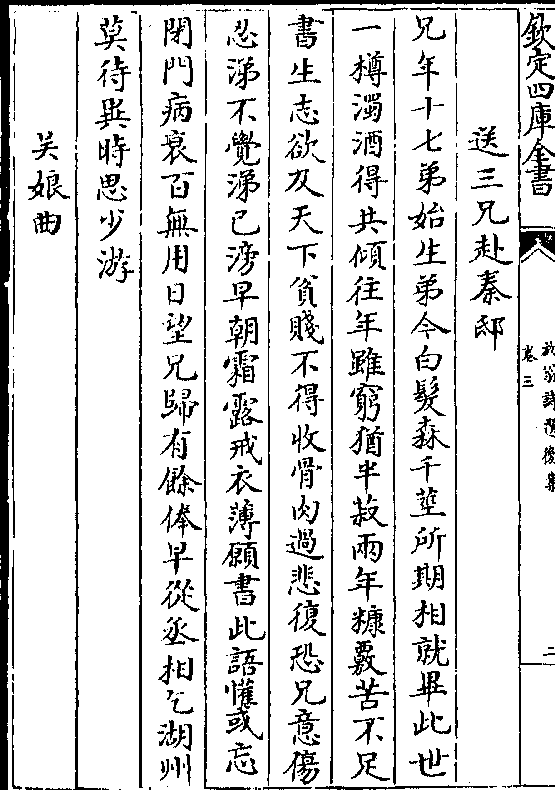 欽定四庫全書
放翁詩選後集
卷三
二
送三兄赴秦邸
兄年十七弟始生弟今白髮森千莖所期相就畢此世
一樽濁酒得共傾往年雖窮猶半菽兩年糠覈苦不足
書生志欲及天下貧賤不得收骨肉過悲復恐兄意傷
忍涕不覺涕已滂早朝霜露戒衣薄願書此語懼或忘
閉門病衰百無用日望兄歸有餘俸早從丞相乞湖州
莫待異時思少游
吴娘曲